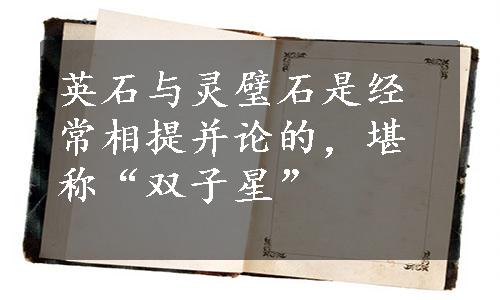 英石与灵璧石是经
常相提并论的，堪
称“双子星”